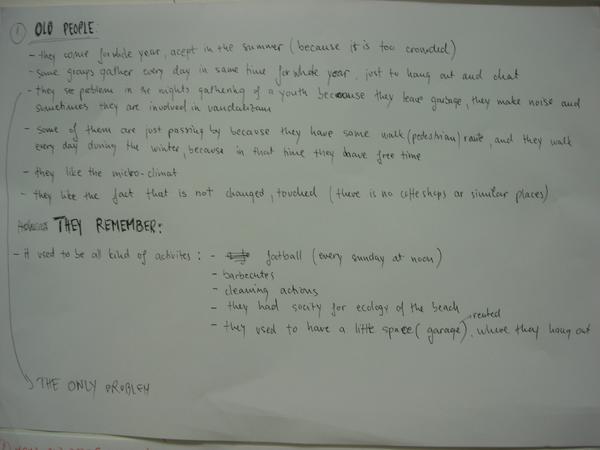 1 OLD PEOPLE:
- they come for whole year, acept in the summer (because it is too crowded)
- some groups gather every day in same time for whole year, just to hang out and chat
- they se problem in the nights gathering of a youth because they leave garbage, they make noise and
sometimes they are involved in vandalizam
- some of them are just passing by because they have some walk (pedestrian) route, and they walk
every day during the winter, because in that time they have free time
- they like the micro-climat
- they like the fact that is not changed, touched (there is no coffe shops or similar places)
THEY REMEMBER:
- it used to be all kind of activites : - football (every sunday at noon)
- barbecutes
- cleaning actions
- they had socity for ecology of the beach
rented
- they used to have a little space (garage), where they hang out
THE ONLY PROBLEM